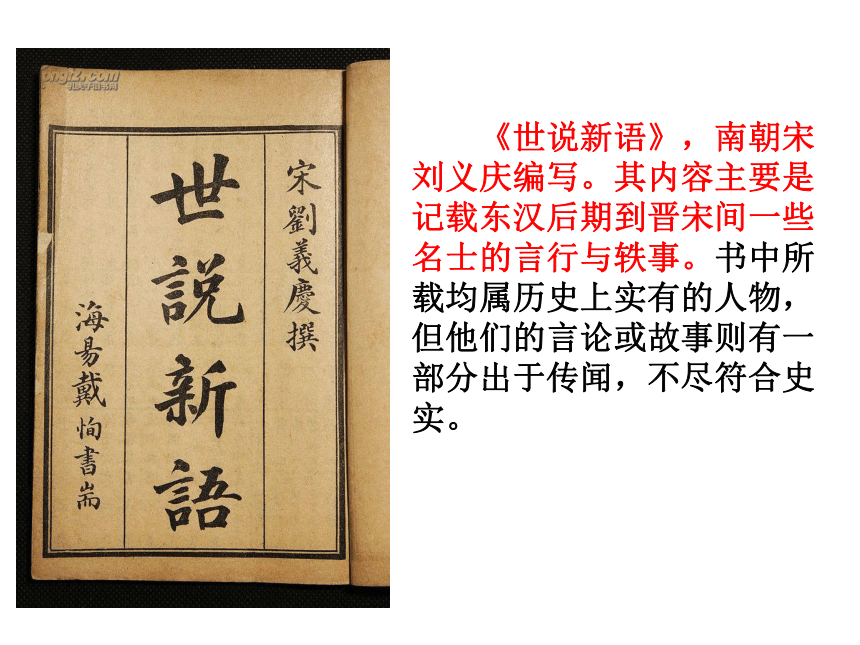 宋劉義慶撰
世説新語
海昜戴恂書耑
《世说新语》，南朝宋
刘义庆编写。其内容主要是
记载东汉后期到晋宋间一些
名士的言行与轶事。书中所
载均属历史上实有的人物，
但他们的言论或故事则有一
部分出于传闻，不尽符合史
实。